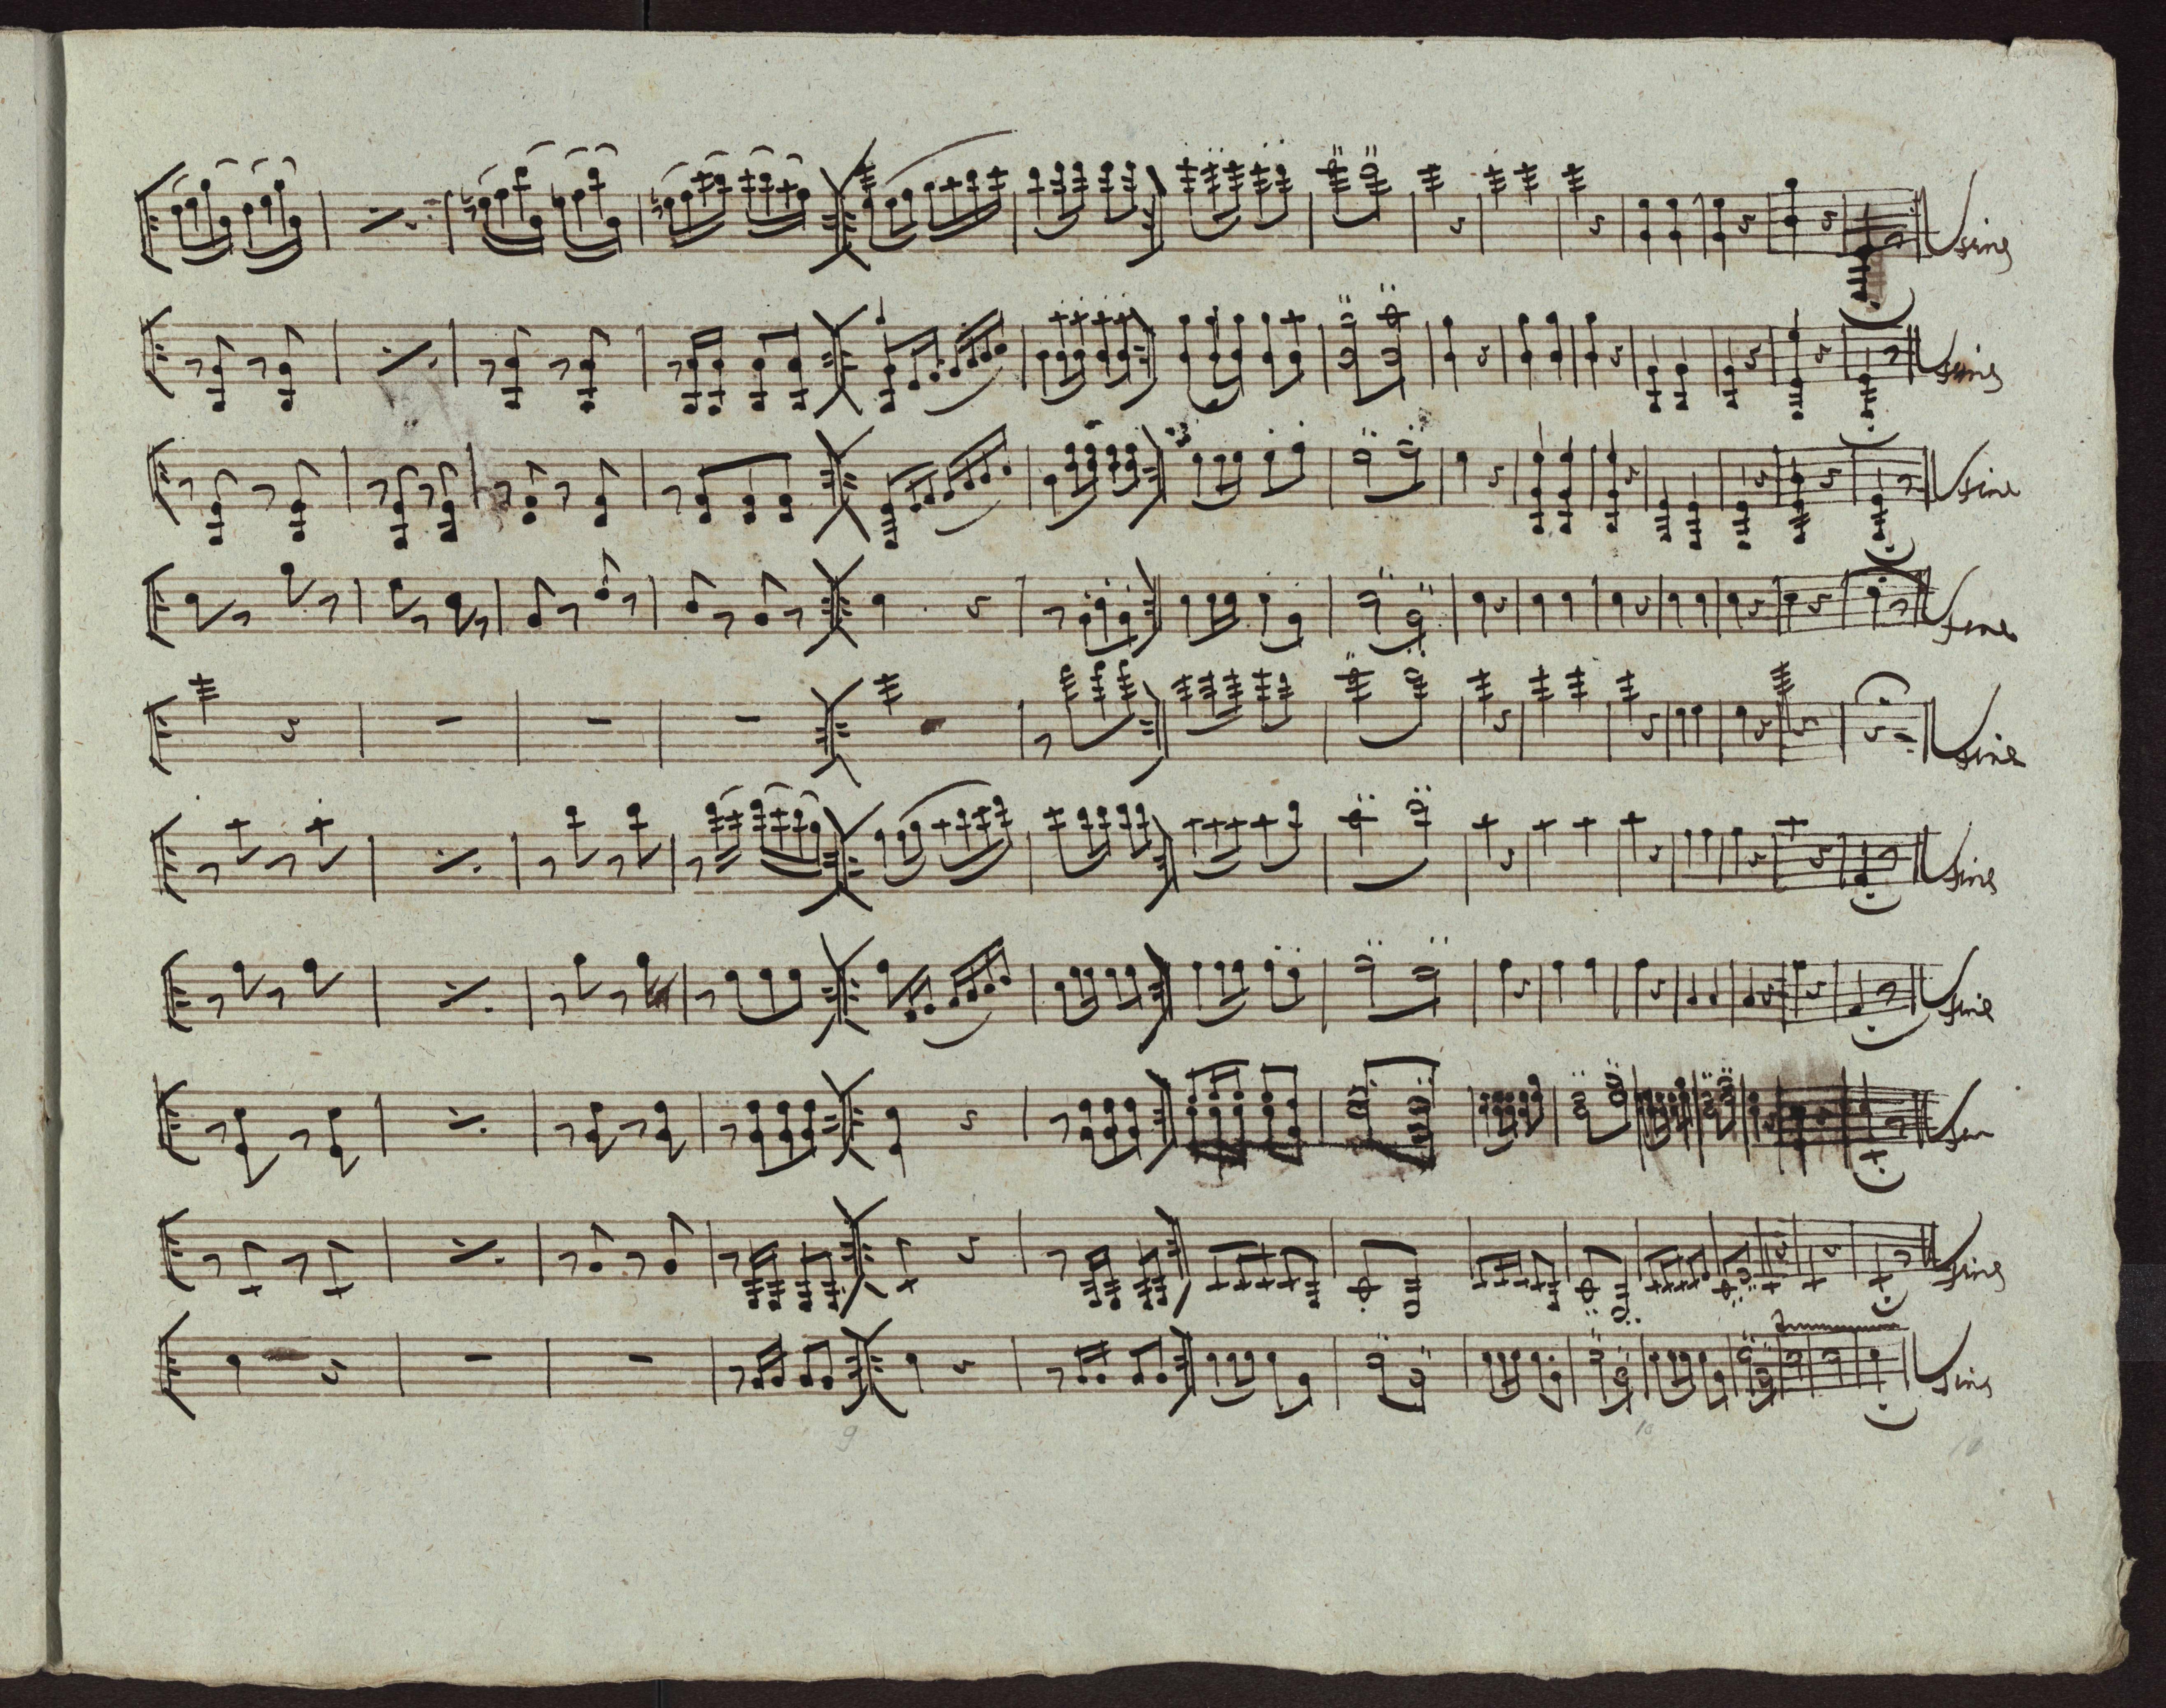 fine
fine
fine
fine
fine
fine
fine
fin
fine
fine
9 10 10